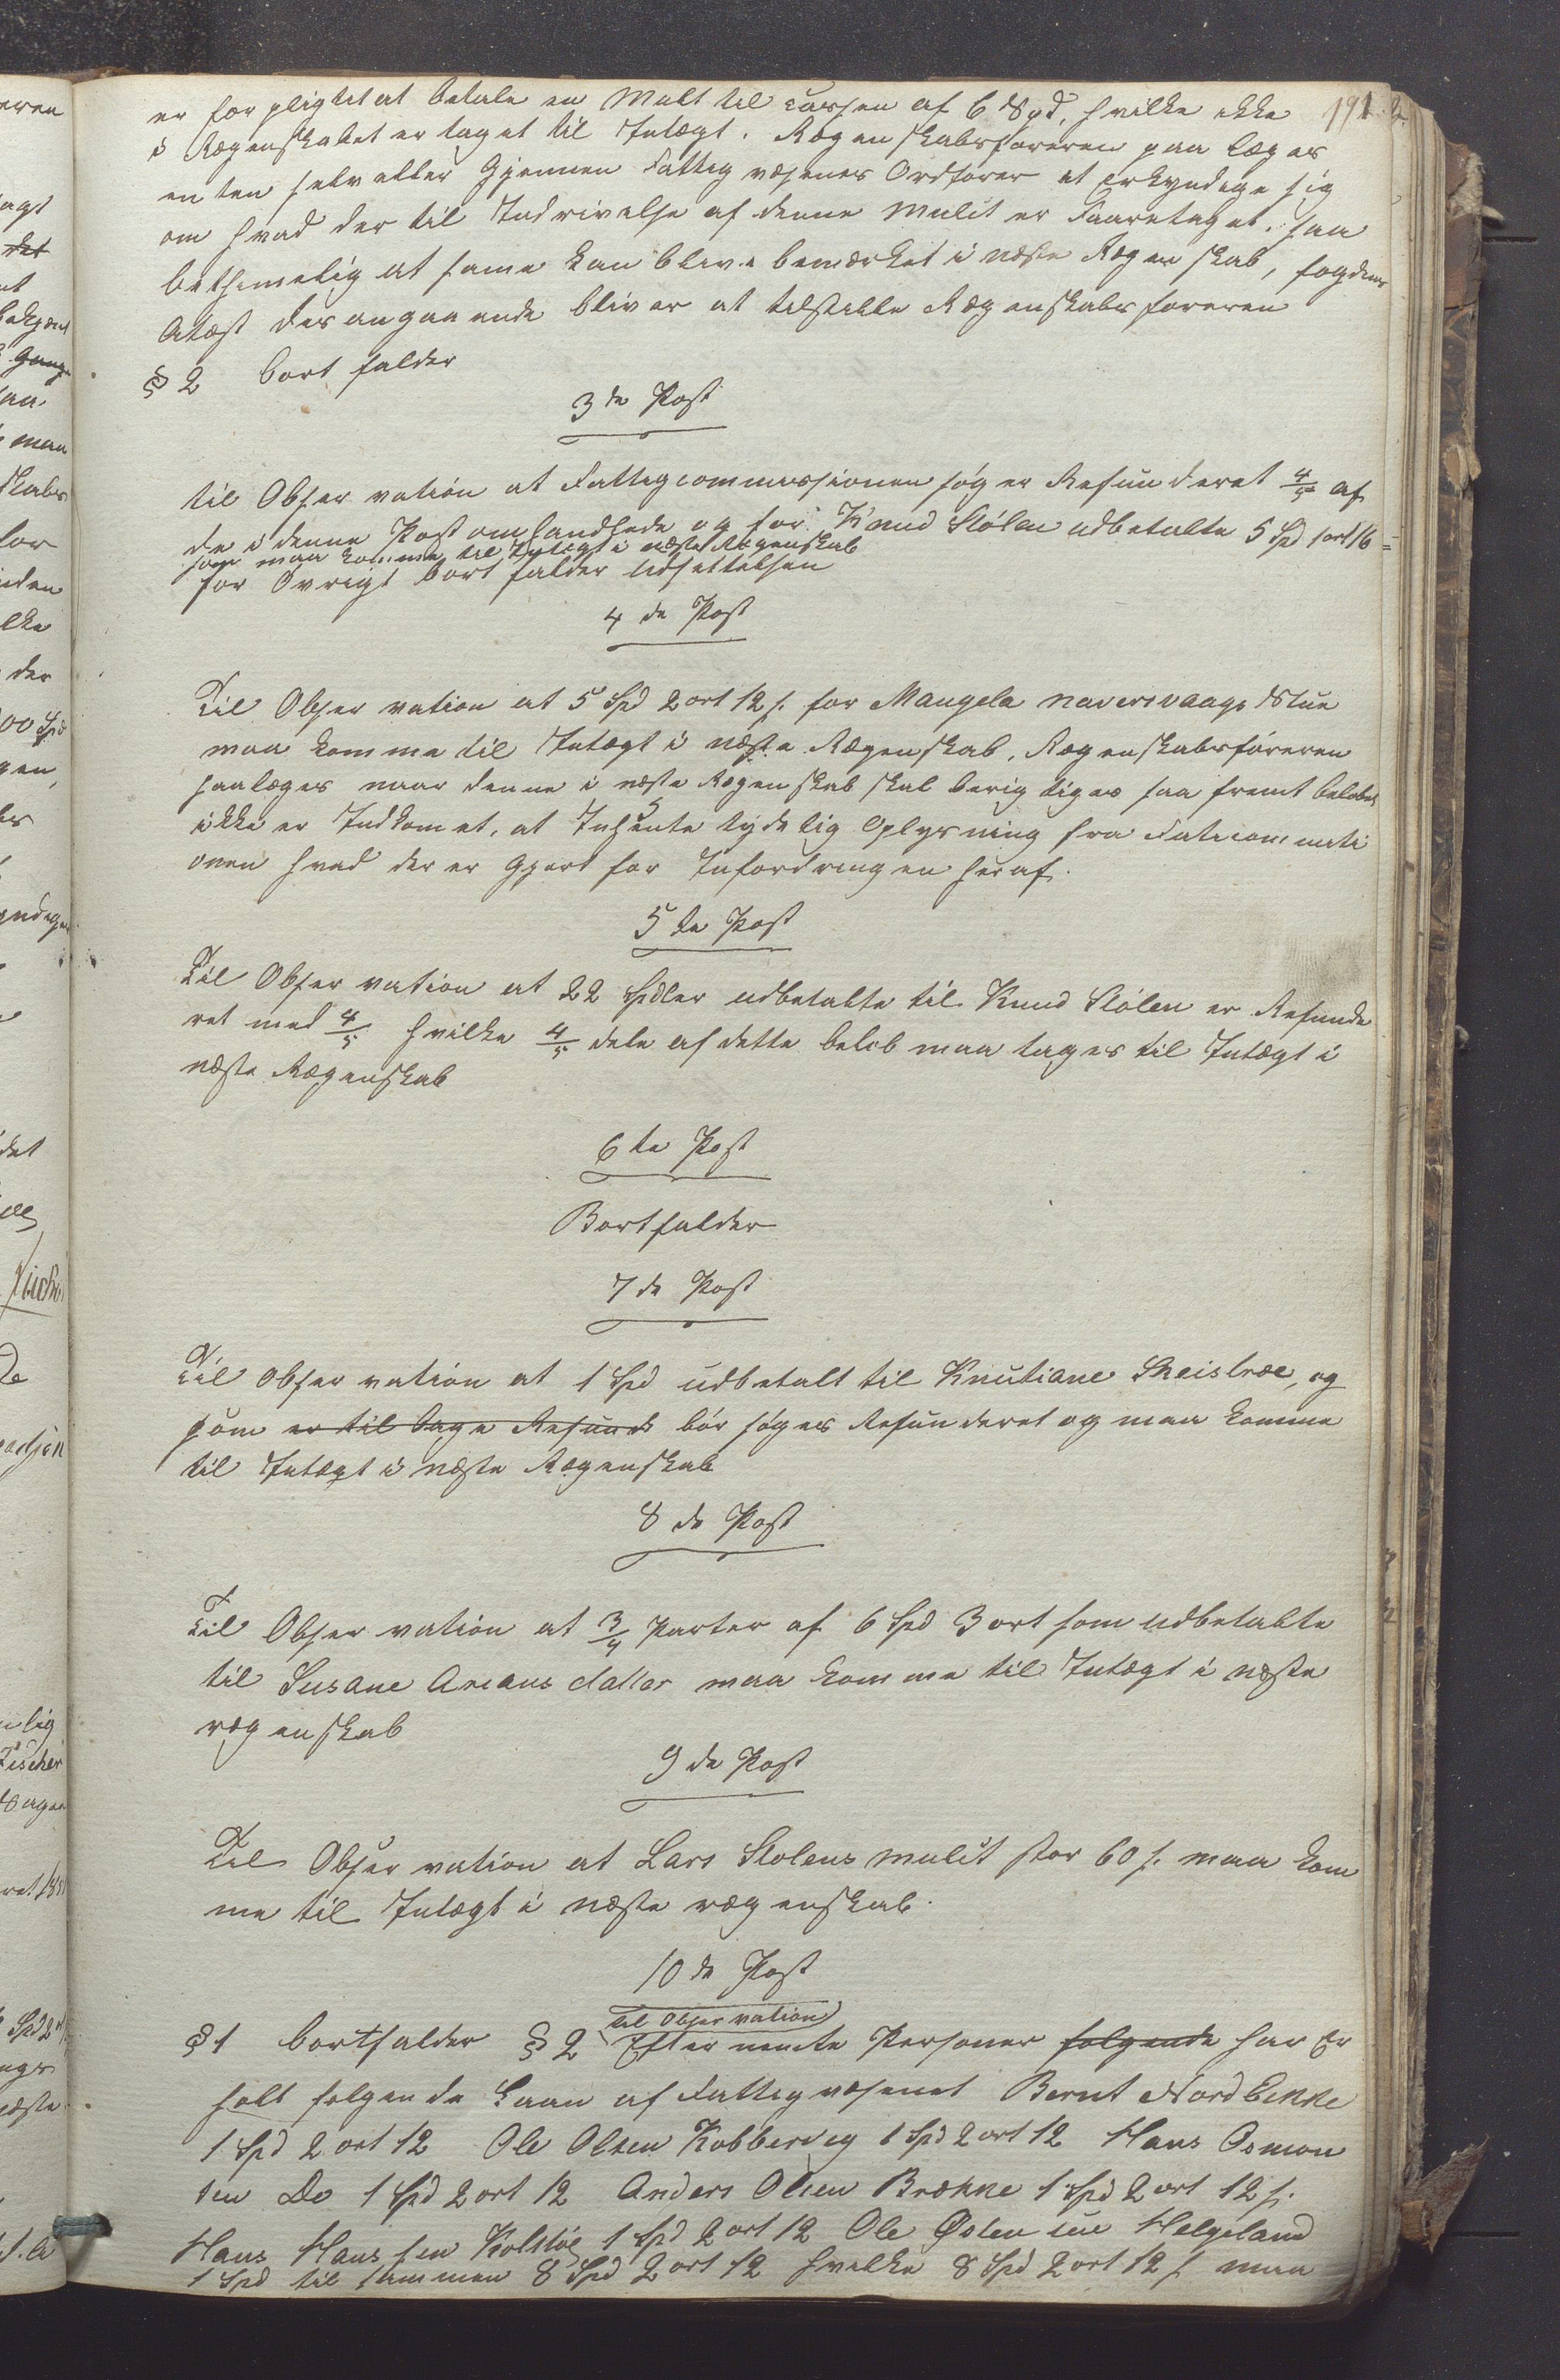 191.
er forpligtet at betale en Mult til Cassen af 6 Spd, hvilke ikke
i Regenskabet er taget til Intægt. Regenskabsføreren paalæges
enten selv eller Gjennem Fattigvæsenes Ordfører at erkyndige sig
om hvad der til Inddrivelse af denne Mulit er Faaretaget, saa
bethimelig at same kan blive bemærket i næste Regenskab, fogdens
Atæst desangaaende bliver at tilstille Regenskabsføreren
§ 2 bortfalder
3de Post
til Observation at Fattigcommissionen søger Refunderet 4/5 af
de i denne Post omhandlede og for Knud Stølen udbetalte 5 Spd 1 ort 16
som maa komme til Intægt i næste Regenskab
for Øvrigt bortfalder Udsettelsen
4de Post
Til Observation at 5 Spd 2 ort 12 s. for Mangela naversvaags Stue
maa komme til Intægt i næste Regenskab, Regenskabsføreren
paalæges naar denne i næste Regenskab skal berigtiges saa fremt beløbet
ikke er Indkomet, at Inhente tydelig Oplysning fra Faticommiti
onen hvad der er Gjort for Infordringen heraf.
5te Post
Til Observation at 22 Spdler udbetalte til Knud Stølen er Refunde
ret med 4/5 hvilke 4/5 dele af dette beløb maa tages til Intægt i
næste Regenskab
6te Post
Bortfalder
7de Post
Til Observation at 1 Spd udbetalt til Knutiane Sneistræe, og
som er til bage Refunde bør søges Refunderet og maa komme
til Intægt i næste Regenskab
8de Post
Til Observation at 3/4 Parter af 6 Spd 3 ort som udbetalte
til Susane Areans datter maa komme til Intægt i næste
regenskab
9de Post
Til Observation at Lars Stolens mulit stor 60 s. maa kom
me til Intægt i næste regenskab.
10de Post
til Observation
§ 1 bortfalder § 2 Efternemte Personer følgende har Er
holt følgende Laan af Fattigvæsenet Bernt Nordbekke
1 Spd 2 ort 12 Ole Olsen Kobbervig 1 Spd 2 ort 12 Hans Osmon
sen Do 1 Spd 2 ort 12 Anders Olsen Brækne 1 Spd 2 ort 12 s.
Hans Hanssen Kolstøe 1 Spd 2 ort 12 Ole Østensen Helgeland
1 Spd til sammen 8 Spd 2 ort 12 hvilke 8 Spd 2 ort 12 s. maa